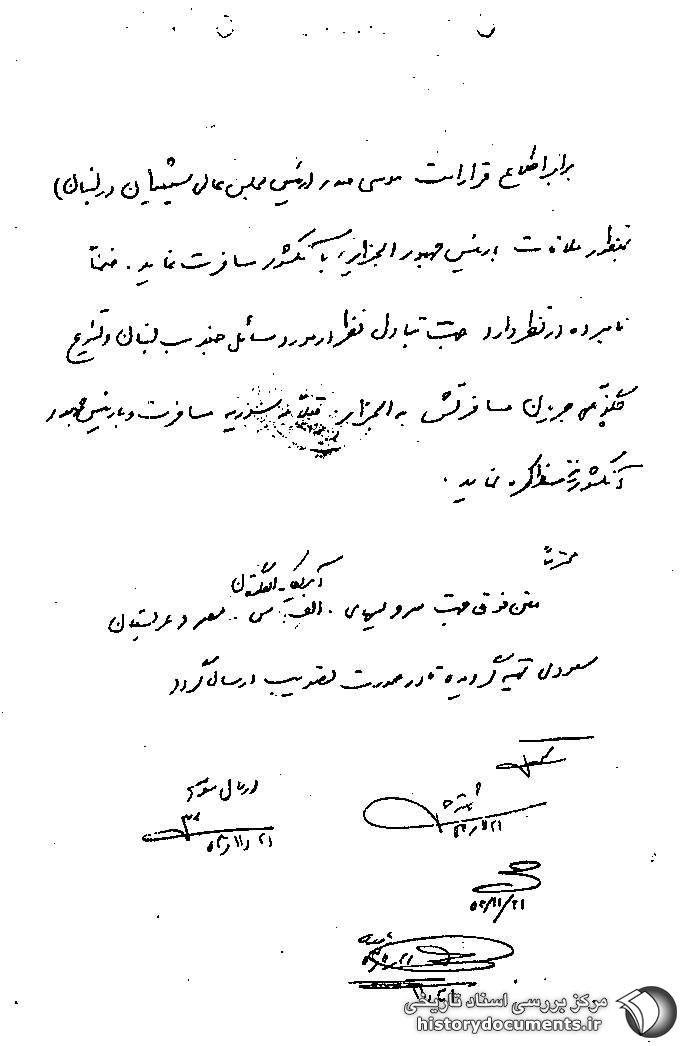 برابر اطلاع قرار است موسی صدر (رئیس مجلس عالی شیعیان در لبنان)
بمنظور ملاقات با رئیس جمهور الجزایر، بآنکشور مسافرت نماید. ضمناً
نامبرده در نظر دارد جهت تبادل نظر در مورد مسائل جنوب لبنان و تشریح
چگونگی جریان مسافرتش به الجزایر، قبلاً به سوریه مسافرت و با رئیس جمهور
آنکشور نیز مذاکره نماید.
محترماً
آمریکا - انگلستان
متن فوق جهت سرویسهای. الف. س. مصر و عربستان
سعودی تهیه گردیده تا در صورت تصویب ارسال گردد
ارسال شود
۲۱/۱۱/۵۲
مرکز بررسی اسناد تاریخی
historydocuments.ir